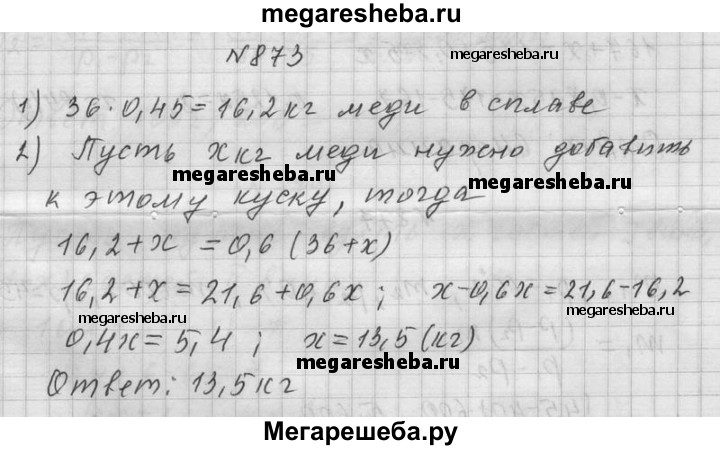 megaresheba.ru
N873
megaresheba.ru
1) 36·0,45=16,2кг меди в сплаве
2) Пусть х кг меди нужно добавить
megaresheba.ru
megaresheba.ru
к этому куску, тогда
16,2+х = 0,6 (36+х)
16,2+х = 21,6+0,6х ; х-0,6х=21,6-16,2
megaresheba.ru
megaresheba.ru
0,4х = 5,4 ; х=13,5 (кг)
megaresheba.ru
Ответ: 13,5 кг
Мегарешеба.ру